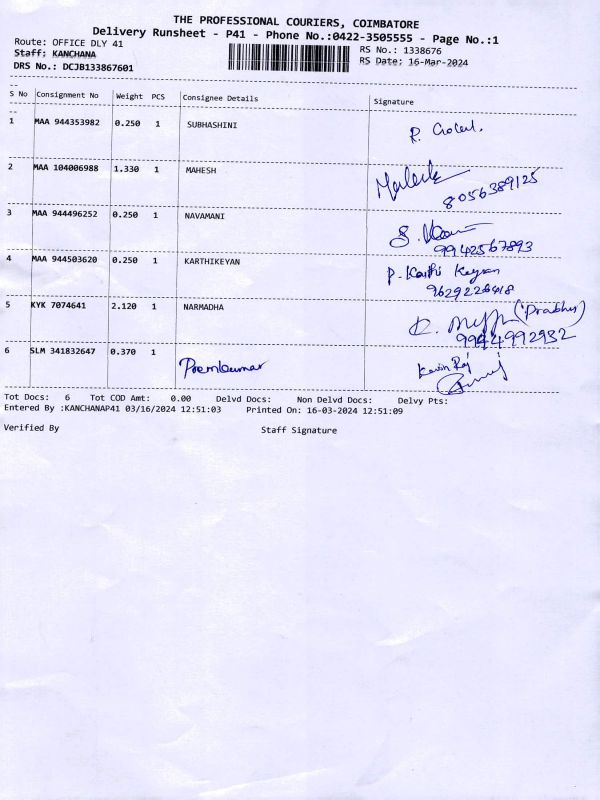 THE PROFESSIONAL COURIERS, COIMBATORE
Delivery Runsheet - P41 - Phone No.:0422-3505555 - Page No.:1
Route: OFFICE DLY 41
RS No.: 1338676
Staff: KANCHANA
RS Date: 16-Mar-2024
DRS No.: DCJB133867601
S No Consignment No Weight PCS Consignee Details Signature
1 MAA 944353982 0.250 1 SUBHASHINI
2 MAA 104006988 1.330 1 MAHESH
8056389125
3 MAA 944496252 0.250 1 NAVAMANI
9942567893
4 MAA 944503620 0.250 1 KARTHIKEYAN P. Karthi Keyan
9629226418
5 KYK 7074641 2.120 1 NARMADHA (Prabhu)
9944992932
6 SLM 341832647 0.370 1 Premkumar Kevin Raj
Tot Docs: 6 Tot COD Amt: 0.00 Delvd Docs: Non Delvd Docs: Delvy Pts:
Entered By :KANCHANAP41 03/16/2024 12:51:03 Printed On: 16-03-2024 12:51:09
Verified By Staff Signature